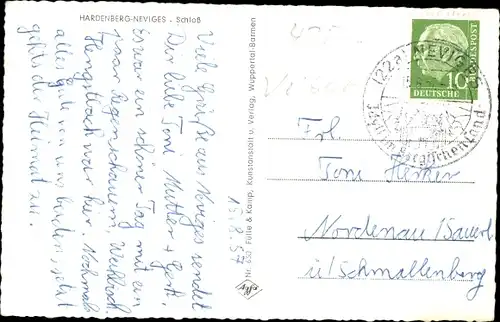 HARDENBERG-NEVIGES - Schloß
Viele Grüße aus Neviges sendet
Dir liebe Toni Mutter + Gert.
Es war ein schöner Tag mit ein
paar Regenschauern,
war hier. Nochmals
alles Gute von uns beiden, jetzt
geht's der Heimat zu.
15.8.57
Nr. 650 Fülle & Kamp, Kunstanstalt u. Verlag, Wuppertal-Barmen
(22a) NEVIGES
10
DEUTSCHE
BUNDESPOST
Frl.
Toni
Nordenau/Sauerl.
ü/Schmallenberg